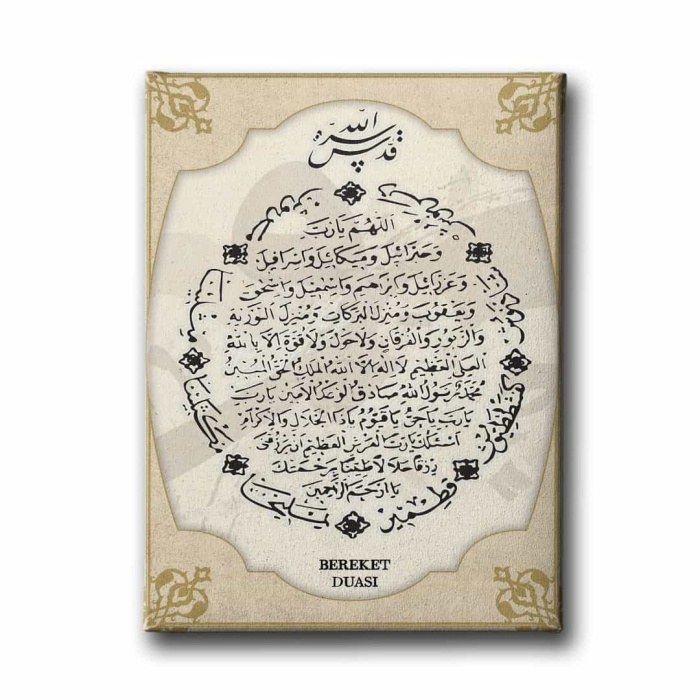 قدس الله سره
اللهم يارب
وجبرائيل وميكائيل واسرافيل
وعزرائيل وابراهيم واسمعيل واسحق
ويعقوب ومنزل البركات ومنزل التورية
والزبور والفرقان ولاحول ولا قوة الا بالله
العلى العظيم لا اله الا الله الملك الحق المبين
محمد رسول الله صادق الوعد الامين يارب
يارب ياحى ياقيوم ياذا الجلال والاكرام
اسئلك يارب العرش العظيم ان ترزقنى
رزقا حلالا طيبا برحمتك
يا ارحم الراحمين
يمليخا
مكثلينا
قطمير
BEREKET
DUASI